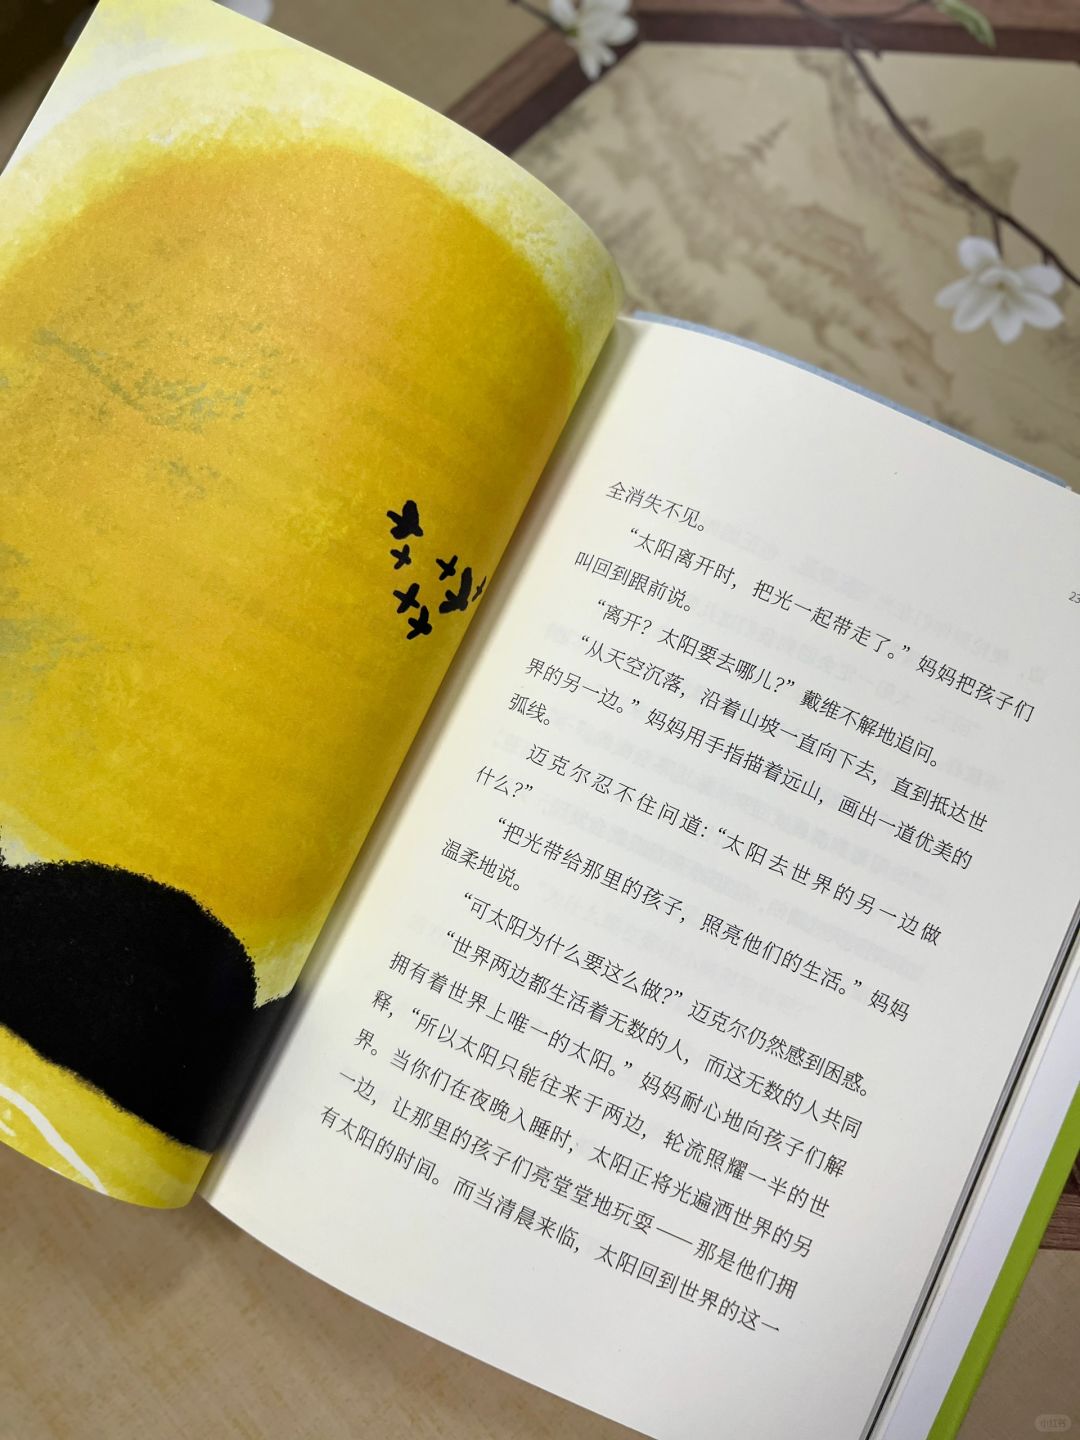 全消失不见。
“太阳离开时，把光一起带走了。”妈妈把孩子们
叫回到跟前说。
“离开？太阳要去哪儿？”戴维不解地追问。
“从天空沉落，沿着山坡一直向下去，直到抵达世
界的另一边。”妈妈用手指描着远山，画出一道优美的
弧线。
迈克尔忍不住问道：“太阳去世界的另一边做
什么？”
“把光带给那里的孩子，照亮他们的生活。”妈妈
温柔地说。
“可太阳为什么要这么做？”迈克尔仍然感到困惑。
“世界两边都生活着无数的人，而这无数的人共同
拥有着世界上唯一的太阳。”妈妈耐心地向孩子们解
释，“所以太阳只能往来于两边，轮流照耀一半的世
界。当你们在夜晚入睡时，太阳正将光遍洒世界的另
一边，让那里的孩子们亮堂堂地玩耍——那是他们拥
有太阳的时间。而当清晨来临，太阳回到世界的这一
23
小红书